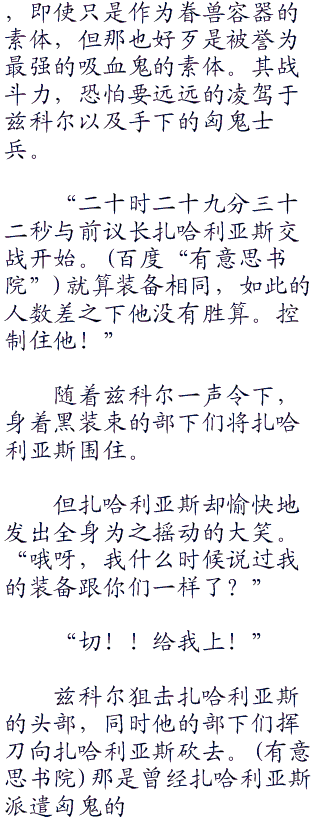 ，即使只是作为眷兽容器的
素体，但那也好歹是被誉为
最强的吸血鬼的素体。其战
斗力，恐怕要远远的凌驾于
兹科尔以及手下的匈鬼士
兵。
“二十时二十九分三十
二秒与前议长扎哈利亚斯交
战开始。(百度“有意思书
院”)就算装备相同，如此的
人数差之下他没有胜算。控
制住他！”
随着兹科尔一声令下，
身着黑装束的部下们将扎哈
利亚斯围住。
但扎哈利亚斯却愉快地
发出全身为之摇动的大笑。
“哦呀，我什么时候说过我
的装备跟你们一样了？”
“切！！给我上！”
兹科尔狙击扎哈利亚斯
的头部，同时他的部下们挥
刀向扎哈利亚斯砍去。(有意
思书院)那是曾经扎哈利亚斯
派遣匈鬼的